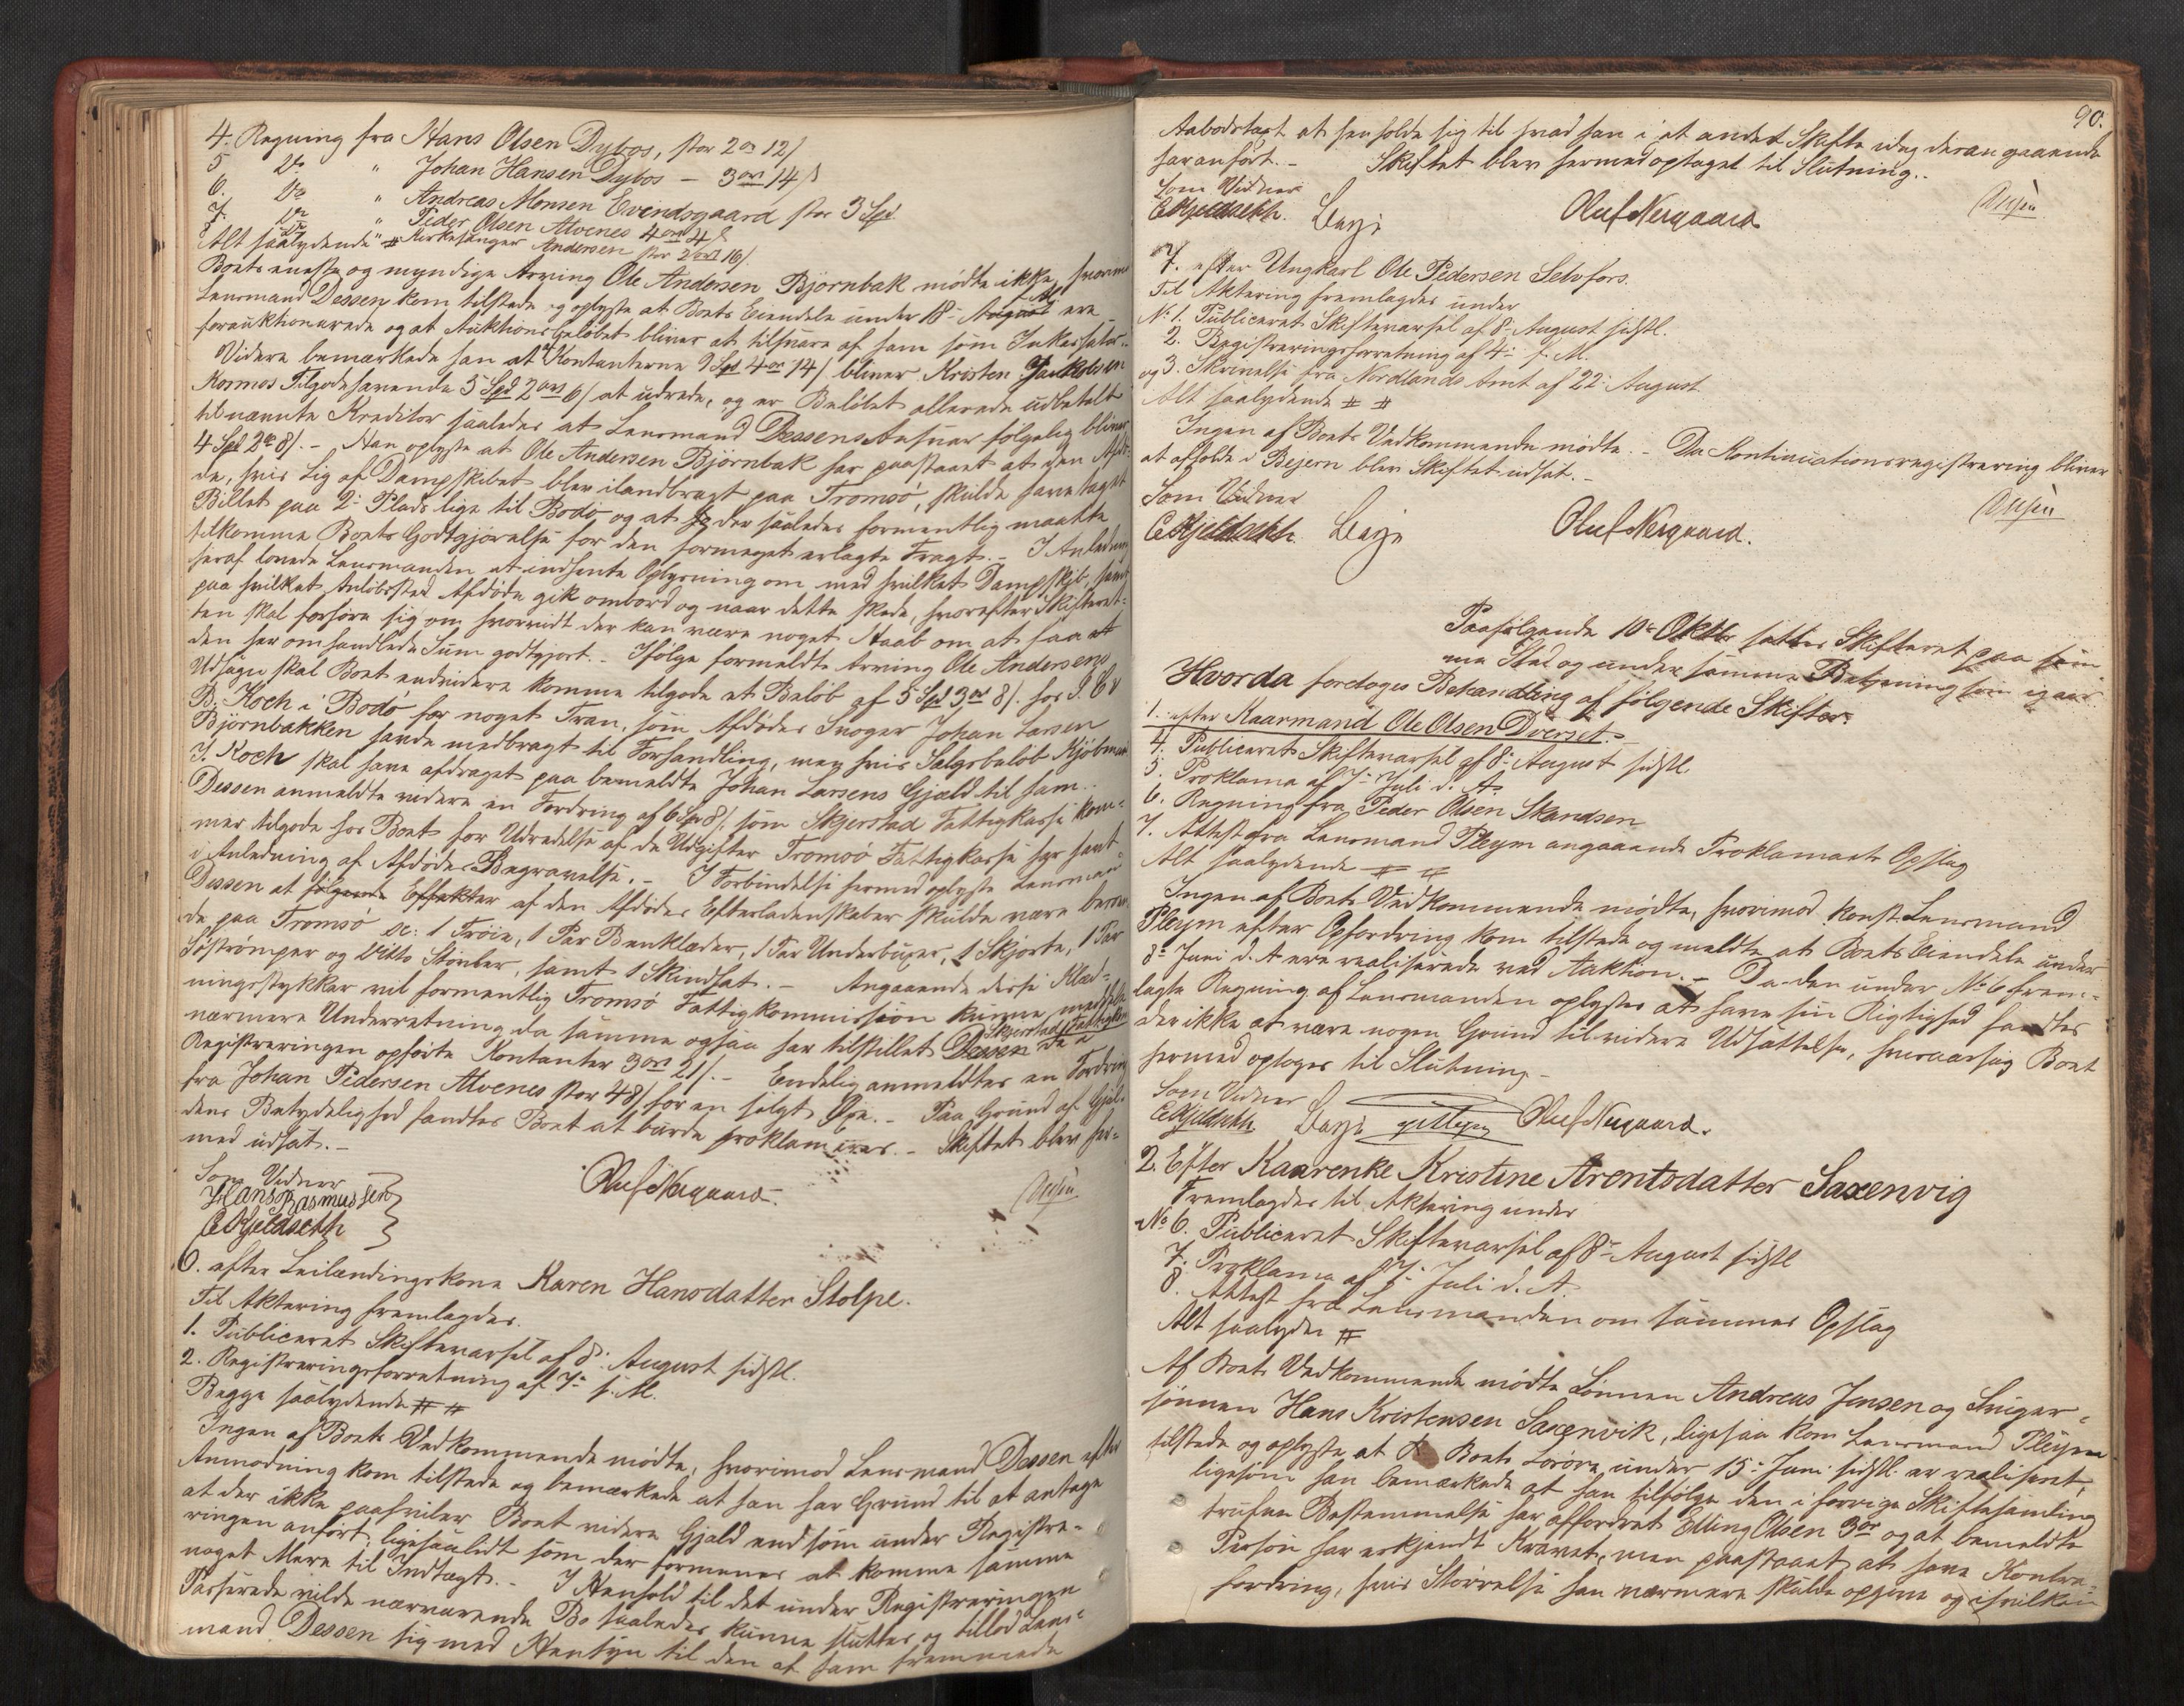 4. Regning fra Hans Olsen Dybos, stor 2 ort 12 /
5 Do " Johan Hansen Dybos — 3 ort 14 /
6. Do " Andreas Monsen Evendsgaard stor 3 Spd
7. Do " Peder Olsen Alvenes 4 ort 4 /
8 Do " Kirkesanger Andersen stor 2 ort 16 /.
Alt saalydende #
Boets eneste og myndige Arving Ole Andersen Bjørnbak mødte ikke, hvorimod
Lensmand Dessen kom tilstede og oplyste at Boets Eiendele under 18de ere
forauktionerede og at Auktionsbeløbet bliver at tilsvare af ham som Inkassator.
Videre bemærkede han at Kontanterne 9 Spd 4 ort 14 / bliver Kristen Jackobsen
Kosmos Tilgodehavende 5 Spd 2 ort 6 / at udrede, og er Beløbet allerede udbetalt
til nævnte Kreditor saaledes at Lensmand Dessens Ansvar følgelig bliver
4 Spd 2 ort 8 /. — Han oplyste at Ole Andersen Bjørnbak har paastaaet at den Afdø-
de, hvis Lig af Dampskibet blev ilandbragt paa Tromsø, skulde have taget
Billet paa 2den Plads lige til Bodø og at der saaledes formentlig maatte
tilkomme Boets Godtgjørelse for den formeget erlagte Fragt. — I Anledning
heraf lovede Lensmanden at indhente Oplysning om med hvilket Dampskib, samt
paa hvilket Anløbssted Afdøde gik ombord og naar dette skede, hvorefter Skifteret-
ten skal forhøre sig om hvorvidt der kan være noget Haab om at faa et
den her omhandlede Sum godtgjort. — Ifølge formeldte Arving Ole Andersens
Udsagn skal Boet endvidere komme tilgode et Beløb af 5 Spd 3 ort 8 /. hos
B. Koch i Bodø for noget Tran, som Afdødes Svoger Johan Larsen
Bjørnbakken havde medbragt til Forhandling, men hvis Salgsbeløb Kjøbmand
J. Koch skal have afdraget paa bemeldte Johan Larsens Gjæld til ham. —
Dessen anmeldte videre en Fordring af 6 Spd 8 /. som Skjerstad Fattigkasse kom-
mer tilgode hos Boet for Udredelse af de Udgifter Tromsø Fattigkasse har havt
i Anledning af Afdødes Begravelse. — I Forbindelse hermed oplyste Lensmand
Dessen at følgende Effekter af den Afdødes Efterladenskaber skulde være
de paa Tromsø sc: 1 Trøie, 1 Par Benklæder, 1 Par Underbuxer, 1 Skjorte, 1 Par
Søstrømper og ditto Støvler, samt 1 Skindhat. — Angaaende disse Klæd-
ningsstykker vil formentlig Tromsø Fattigkommission kunne meddele
nærmere Underretning da samme ogsaa har tilstillet Skjerstad Fattigkom Dessen de i
Registreringen opførte Kontanter 3 ort 21 /. — Endelig anmeldtes en Fordring
fra Johan Pedersen Alvenes stor 48 / for en solgt Øxe. — Paa Grund af Gjæl-
dens Betydelighed fandtes Boet at burde proklameres. — Skiftet blev her-
med udsat. —
Som Vidner
Hans Rasmussen
E. Kjeldseth
Oluf Nergaard.
6. efter Leilændingskone Karen Hansdatter Stolpe.
Til Aktering fremlagdes.
1. Publiceret Skiftevarsel af 8de August sidstl.
2. Registreringsforretning af 7de s. M.
Begge saalydende # #
Ingen af Boets Vedkommende mødte, hvorimod Lensmand Dessen efter
Anmodning kom tilstede og bemærkede at han har Grund til at antage
at der ikke paahviler Boet videre Gjæld end som under Registre-
ringen anført, ligesaalidt som der formenes at komme samme
noget Mere til Indtægt. — I Henhold til det under Registreringen
Passerede vilde nærværende Bo saaledes kunne sluttes og tillod Lens-
mand Dessen sig med Hensyn til den af ham fremmede
90.
Aabodstaxt at henholde sig til hvad han i et andet Skifte idag deran gaaende
har anført. — Skiftet blev hermed optaget til Slutning. .
Som Vidner
E. Kjeldseth. Oluf Nergaard
7. efter Ungkarl Ole Pedersen Selvfors.
Til Aktering fremlagdes under
No 1. Publiceret Skiftevarsel af 8de August sidstl.
2. Registreringsforretning af 4de s. M.
og 3. Skrivelse fra Nordlands Amt af 22de August
Alt saalydende # #
Ingen af Boets Vedkommende mødte. — Da Kontinuationsregistrering bliver
at afholde i Bejern blev Skiftet udsat. —
Som Vidner
E. Kjeldseth. Oluf Nergaard.
Paafølgende 10de Oktbr sattes Skifteret paa sam
me Sted og under samme Betjening som igaar
Hvorda foretoges Behandling af følgende Skifter.
1. efter Kaarmand Ole Olsen Dverset. —
4. Publiceret Skiftevarsel af 8de August sidstl.
5. Proklama af 7de Juli d. A.
6. Regning fra Peder Olsen Skandsen
7. Attest fra Lensmand Pleym angaaende Proklamaets Opslag
Alt saalydende # #
Ingen af Boets Vedkommende mødte, hvorimod konst. Lensmand
Pleym efter Opfordring kom tilstede og meldte at Boets Eiendele under
8de Juni d. A. ere realiserede ved Auktion. — Da den under No 6 frem-
lagte Regning af Lensmanden oplystes at have sin Rigtighed fandtes
der ikke at være nogen Grund til videre Udsættelse, hvoraarsag Boet
hermed optoges til Slutning —
Som Vidner
E. Kjeldseth Oluf Nergaard.
2. Efter Kaarenke Kristine Arentsdatter Saxenvig
Fremlagdes til Aktering under
No 6. Publiceret Skiftevarsel af 8de August sidstl
7. Proklama af 7de Juli d. A.
8. Attest fra Lensmanden om sammes Opslag
Alt saalyder #
Af Boets Vedkommende mødte Sønnen Andreas Jensen og Sviger-
sønnen Hans Kristensen Saxenvik, ligesaa kom Lensmand Pleym
tilstede og oplyste at Boets Løsøre under 15de Juni sidstl. er realiseret,
ligesom han bemærkede at han tilfølge den i forrige Skiftesamling
trufne Bestemmelse har affordret Elling Olsen 3 ort og at bemeldte
Person har erkjendt Kravet, men paastaaet at have Kontra-
fordring, hvis Størrelse han nærmere skulde opgive og i hvilken